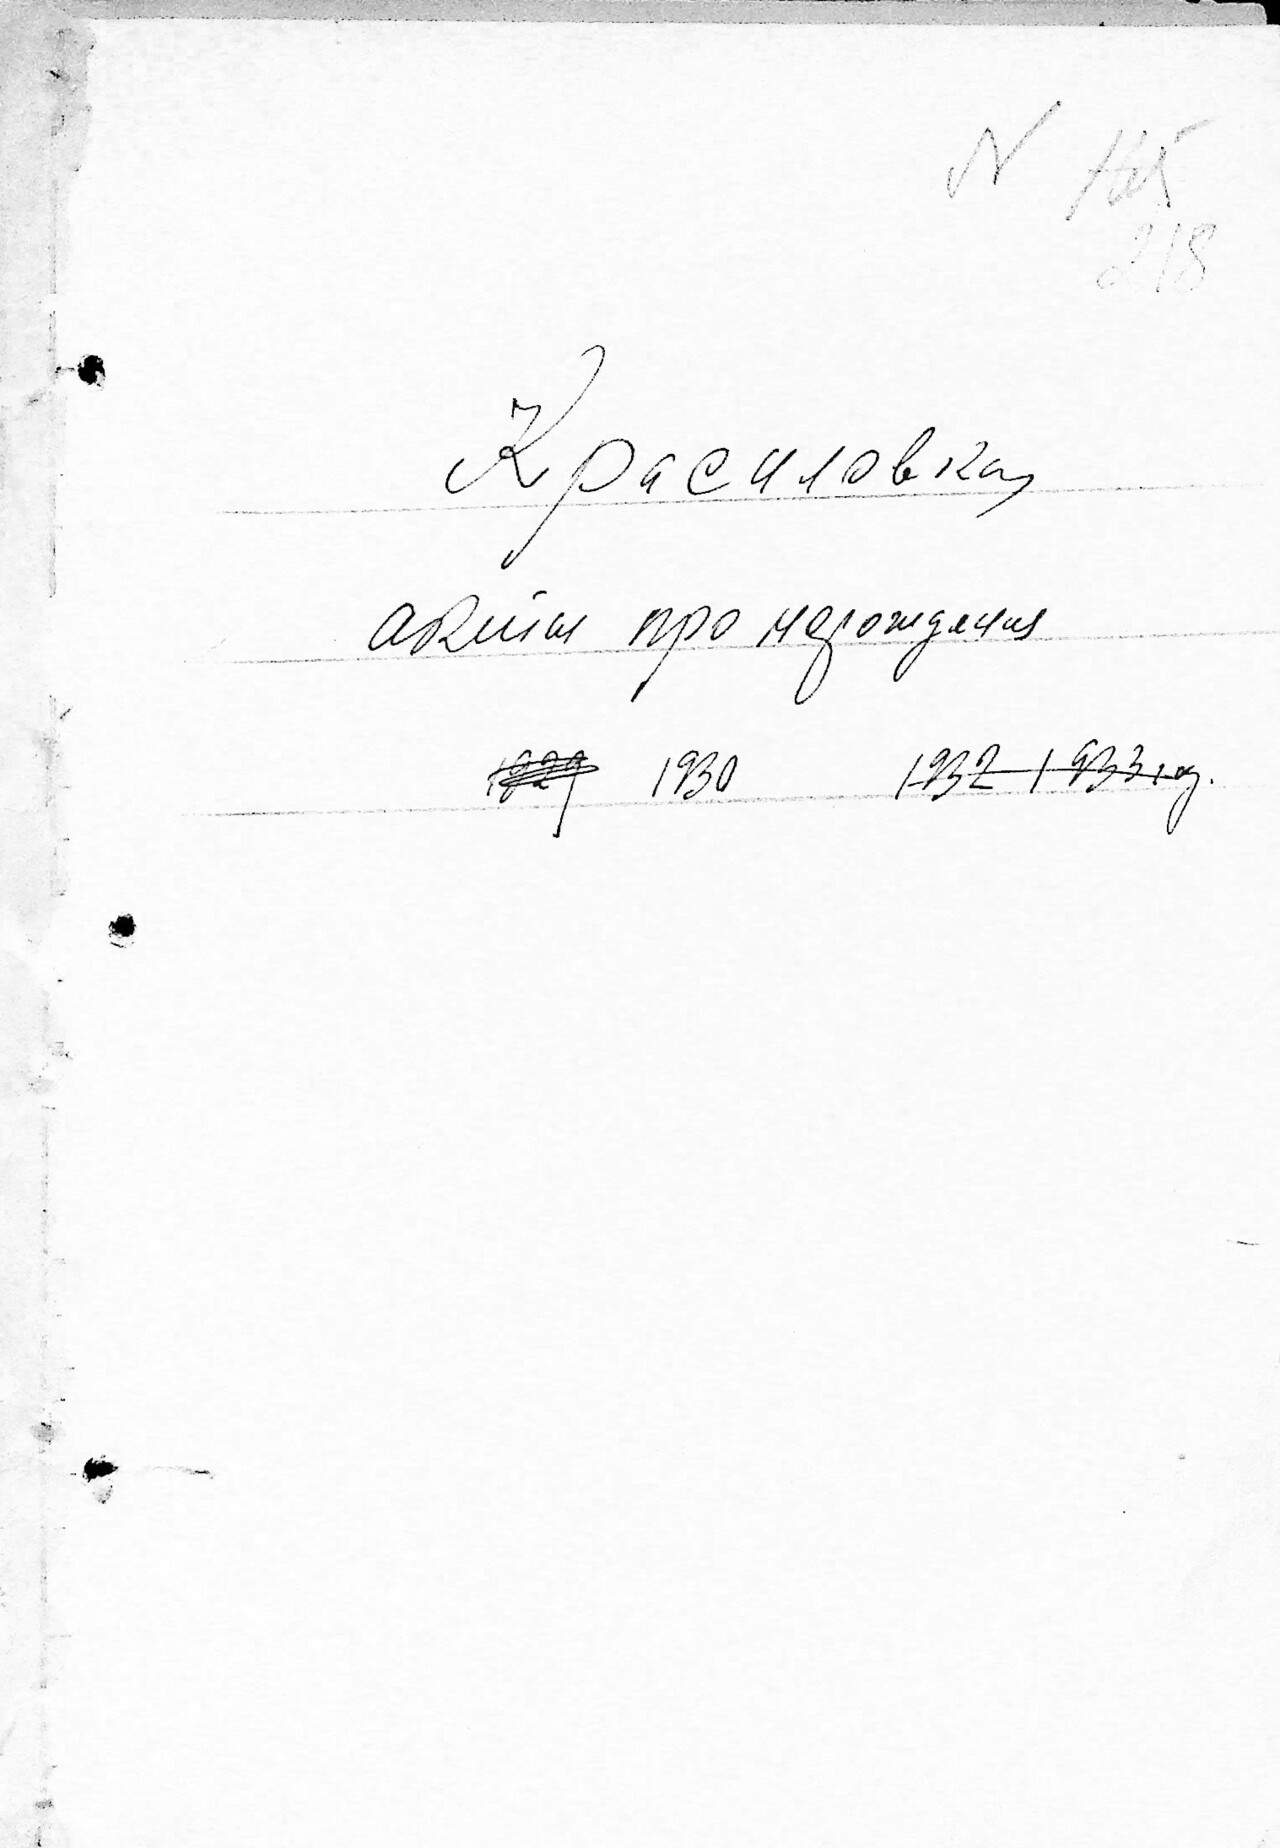 N
218
Красиловка
акты про нарождения
1929 1930 1932 1933 год.